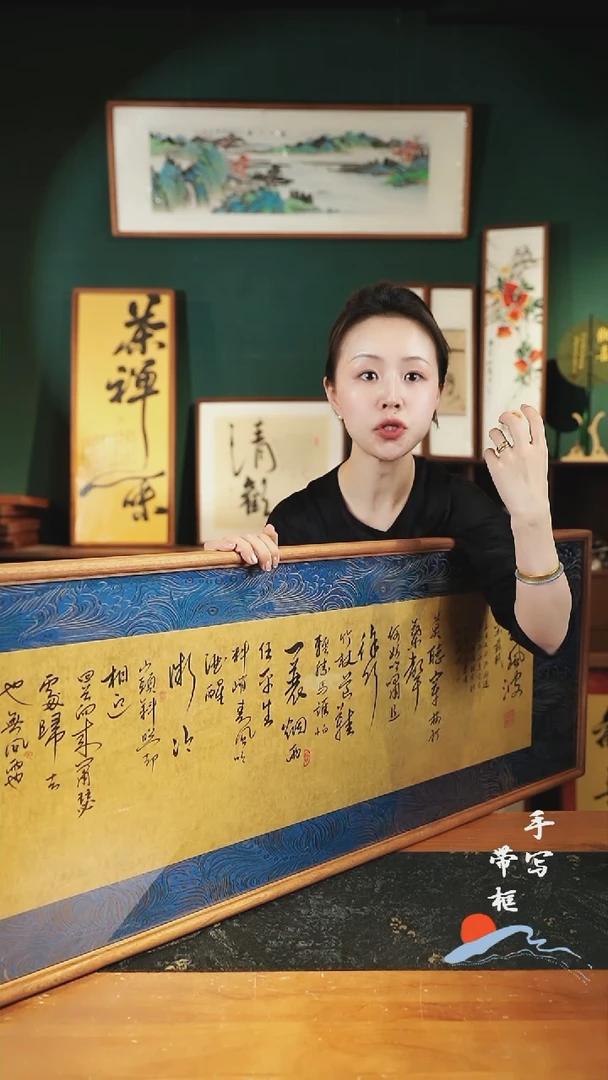 茶禪一味
清歡
風波
莫聽穿林打
葉聲
何妨吟嘯且
徐行
竹杖芒鞋
輕勝馬誰怕
一蓑烟雨
任平生
料峭春風吹
酒醒
微冷
山頭斜照却
相迎
回首向来蕭瑟
處歸去
也無風雨
手写
带框